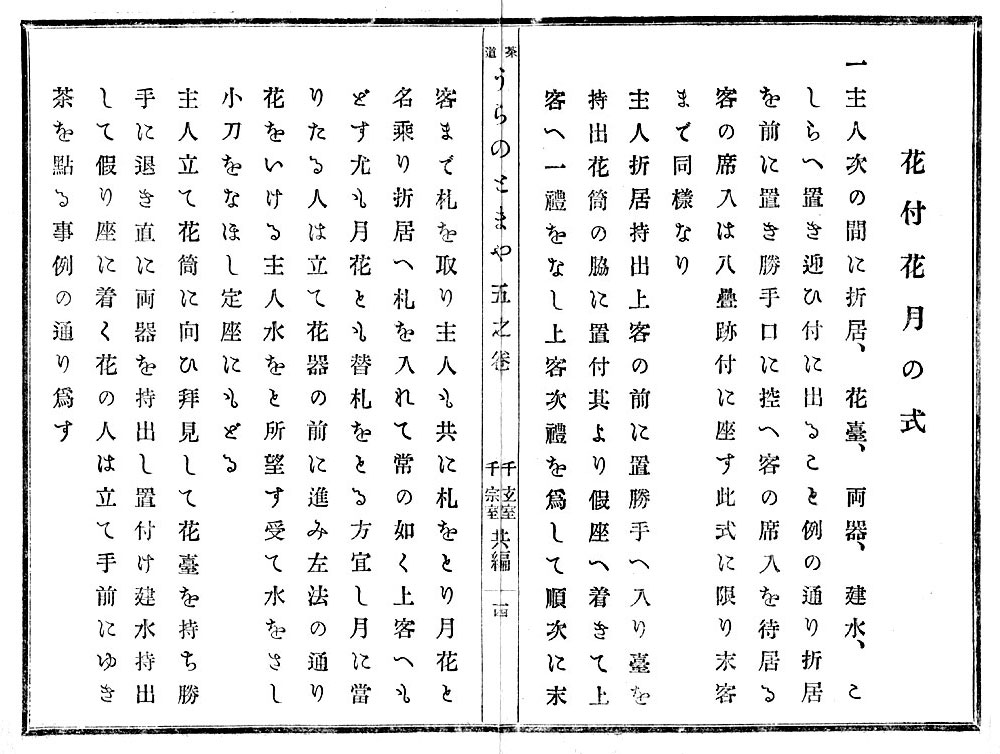 花付花月の式
一主人次の間に折居、花臺、両器、建水、こ
しらへ置き迎ひ付に出ること例の通り折居
を前に置き勝手口に控へ客の席入を待居る
客の席入は八疊跡付に座す此式に限り末客
まで同樣なり
主人折居持出上客の前に置勝手へ入り臺を
持出花筒の脇に置付其より假座へ着きて上
客へ一禮をなし上客次禮を爲して順次に末
茶道うらのとまや五之卷 千宗室 千支室 共編 一四
客まで札を取り主人も共に札をとり月花と
名乘り折居へ札を入れて常の如く上客へも
どす尤も月花とも替札をとる方宜し月に當
りたる人は立て花器の前に進み左法の通り
花をいける主人水をと所望す受て水をさし
小刀をなほし定座にもどる
主人立て花筒に向ひ拜見して花臺を持ち勝
手に退き直に両器を持出し置付け建水持出
して假り座に着く花の人は立て手前にゆき
茶を點る事例の通り爲す